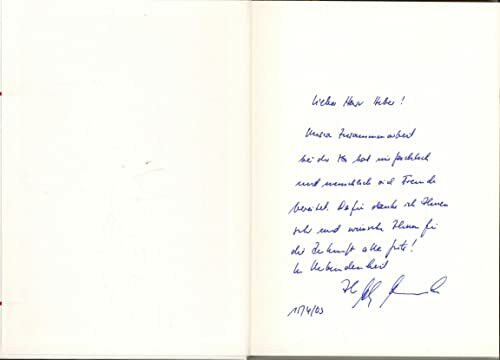 Lieber Herr Huber!
Unsere Zusammenarbeit
bei der hat mir fachlich
und menschlich viel Freude
bereitet. Dafür danke ich Ihnen
sehr und wünsche Ihnen für
die Zukunft alles Gute!
In Verbundenheit
Ihr
15/4/03